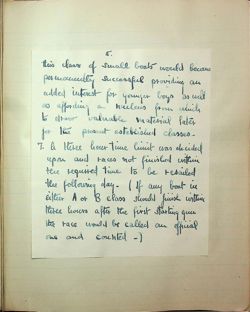 5.
this class of small boats would become
permanently successful providing an
added interest for younger boys as well
as affording a nucleus from which
to draw valuable material later
for the present established classes.
7. A three hour time limit was decided
upon and races not finished within
the required time to be resailed
the following day. (If any boat in
either A or B class should finish within
three hours after the first starting gun
the race would be called an official
one and counted -)